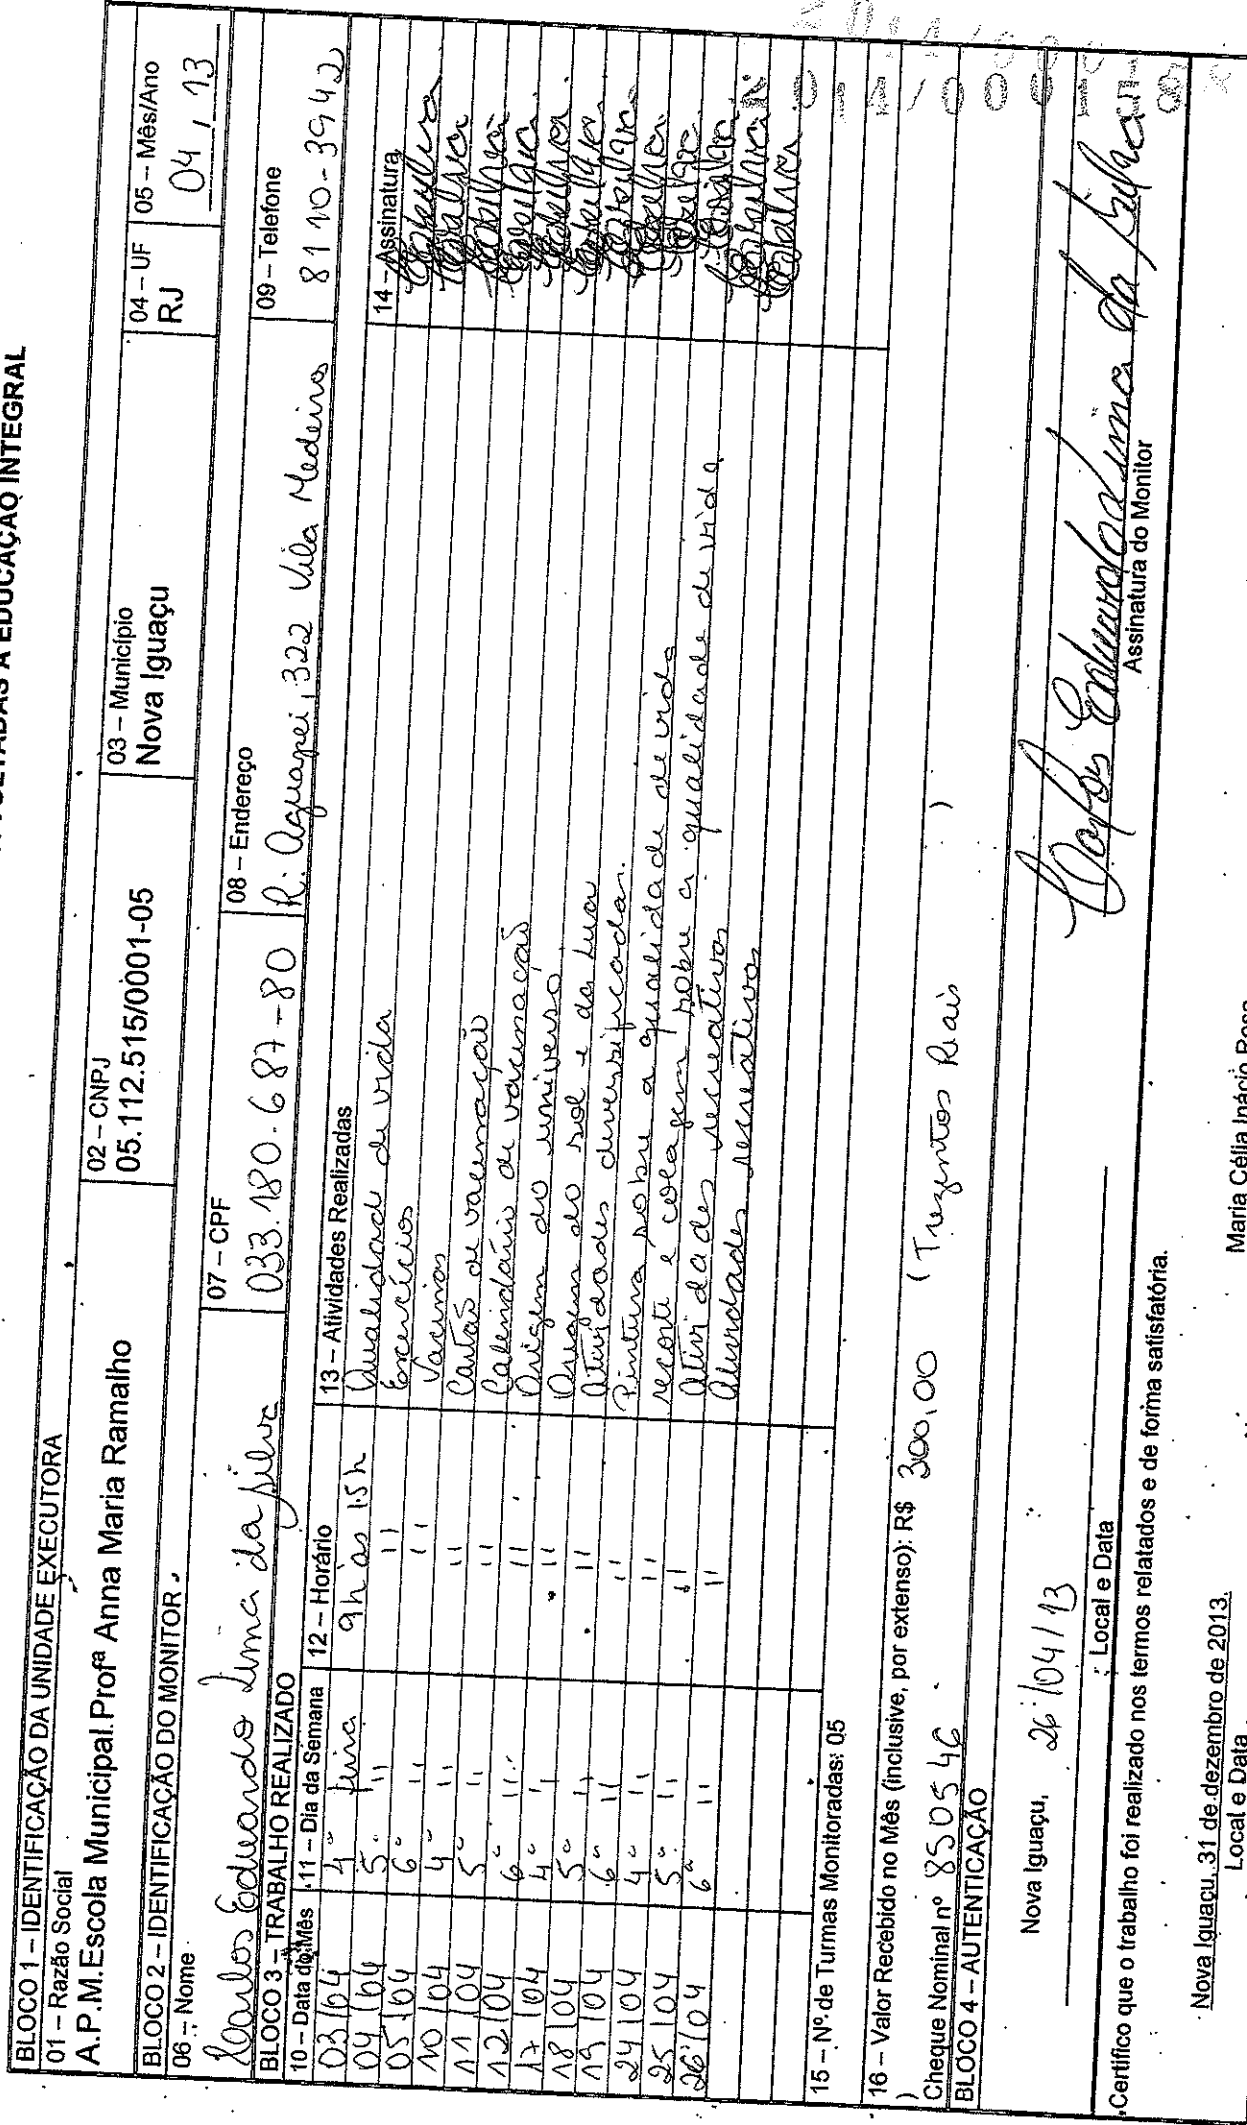 VOLTADAS À EDUCAÇÃO INTEGRAL
BLOCO 1 – IDENTIFICAÇÃO DA UNIDADE EXECUTORA
01 – Razão Social
A.P.M.Escola Municipal Profª Anna Maria Ramalho
02 – CNPJ
05.112.515/0001-05
03 – Município
Nova Iguaçu
04 – UF
RJ
05 – Mês/Ano
04 / 13
BLOCO 2 – IDENTIFICAÇÃO DO MONITOR
06 – Nome
Carlos Eduardo Lima da Silva
07 – CPF
033.180.687-80
08 – Endereço
R. Aguapei, 322 Vila Medeiros
09 – Telefone
8110-3942
BLOCO 3 – TRABALHO REALIZADO
10 – Data do Mês 11 – Dia da Semana 12 – Horário 13 – Atividades Realizadas 14 – Assinatura
03/04 4ª feira 9h às 15h Qualidade de vida
04/04 5ª " " Exercícios
05/04 6ª " " Vacinas
10/04 4ª " " Cartão de vacinação
11/04 5ª " " Calendário de vacinação
12/04 6ª " " Origem do universo
17/04 4ª " " Origem do sol e da lua
18/04 5ª " " Atividades diversificadas.
19/04 6ª " " Pintura sobre a qualidade de vida
24/04 4ª " " recorte e colagem sobre a qualidade de vida
25/04 5ª " " Atividades recreativas
26/04 6ª " " Atividades recreativas
15 – Nº. de Turmas Monitoradas: 05
16 – Valor Recebido no Mês (inclusive, por extenso): R$ 300,00 (Trezentos Reais )
)
Cheque Nominal nº 850546
BLOCO 4 – AUTENTICAÇÃO
Nova Iguaçu, 26/04/13
Local e Data
Carlos Eduardo Lima da Silva
Assinatura do Monitor
Certifico que o trabalho foi realizado nos termos relatados e de forma satisfatória.
Nova Iguaçu, 31 de dezembro de 2013.
Local e Data
Maria Célia Inácio Rosa